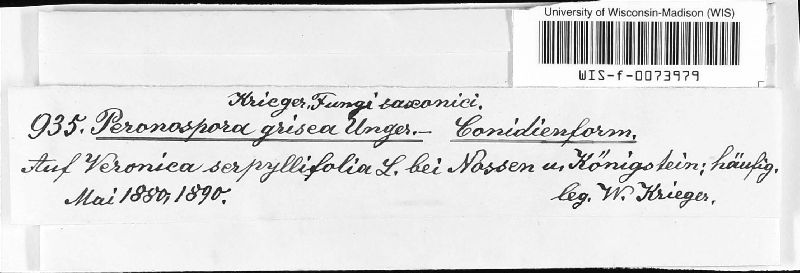 University of Wisconsin-Madison (WIS)
WIS-f-0073979
Krieger, Fungi saxonici.
935. Peronospora grisea Unger.- Conidienform.
Auf Veronica serpyllifolia L. bei Nossen u. Königstein; häufig.
Mai 1880, 1890.
leg. W. Krieger.